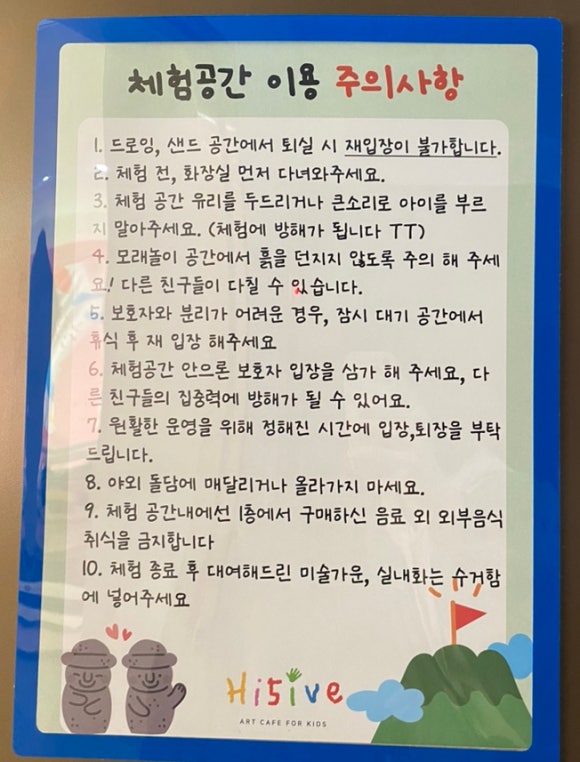 체험공간 이용 주의사항
1. 드로잉, 샌드 공간에서 퇴실 시 재입장이 불가합니다.
2. 체험 전, 화장실 먼저 다녀와주세요.
3. 체험 공간 유리를 두드리거나 큰소리로 아이를 부르
지 말아주세요. (체험에 방해가 됩니다 TT)
4. 모래놀이 공간에서 흙을 던지지 않도록 주의 해 주세
요! 다른 친구들이 다칠 수 있습니다.
5. 보호자와 분리가 어려운 경우, 잠시 대기 공간에서
휴식 후 재 입장 해주세요
6. 체험공간 안으론 보호자 입장을 삼가 해 주세요, 다
른 친구들의 집중력에 방해가 될 수 있어요.
7. 원활한 운영을 위해 정해진 시간에 입장,퇴장을 부탁
드립니다.
8. 야외 돌담에 매달리거나 올라가지 마세요.
9. 체험 공간내에선 1층에서 구매하신 음료 외 외부음식
취식을 금지합니다
10. 체험 종료 후 대여해드린 미술가운, 실내화는 수거함
에 넣어주세요
Hi5ive
ART CAFE FOR KIDS